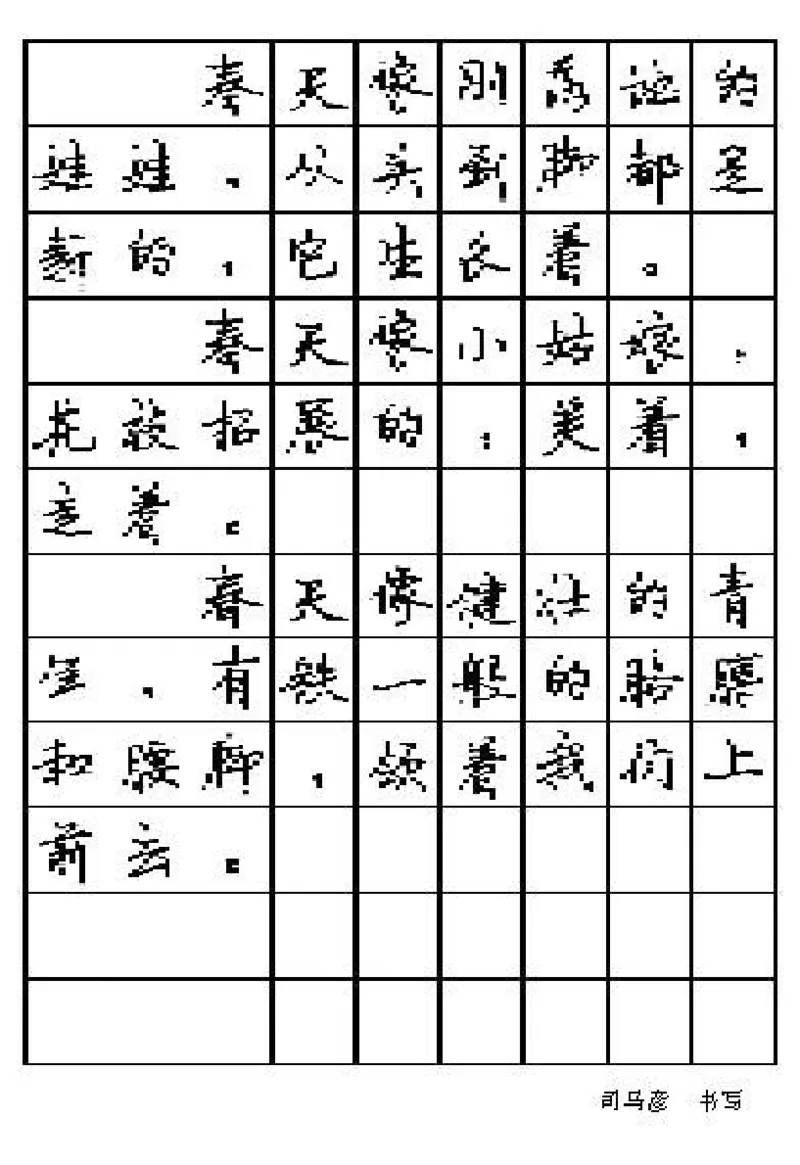 春天像刚落地的
娃娃，从头到脚都是
新的，它生长着。
春天像小姑娘，
花枝招展的，笑着，
走着。
春天像健壮的青
年，有铁一般的胳膊
和腰脚，领着我们上
前去。
司马彦 书写